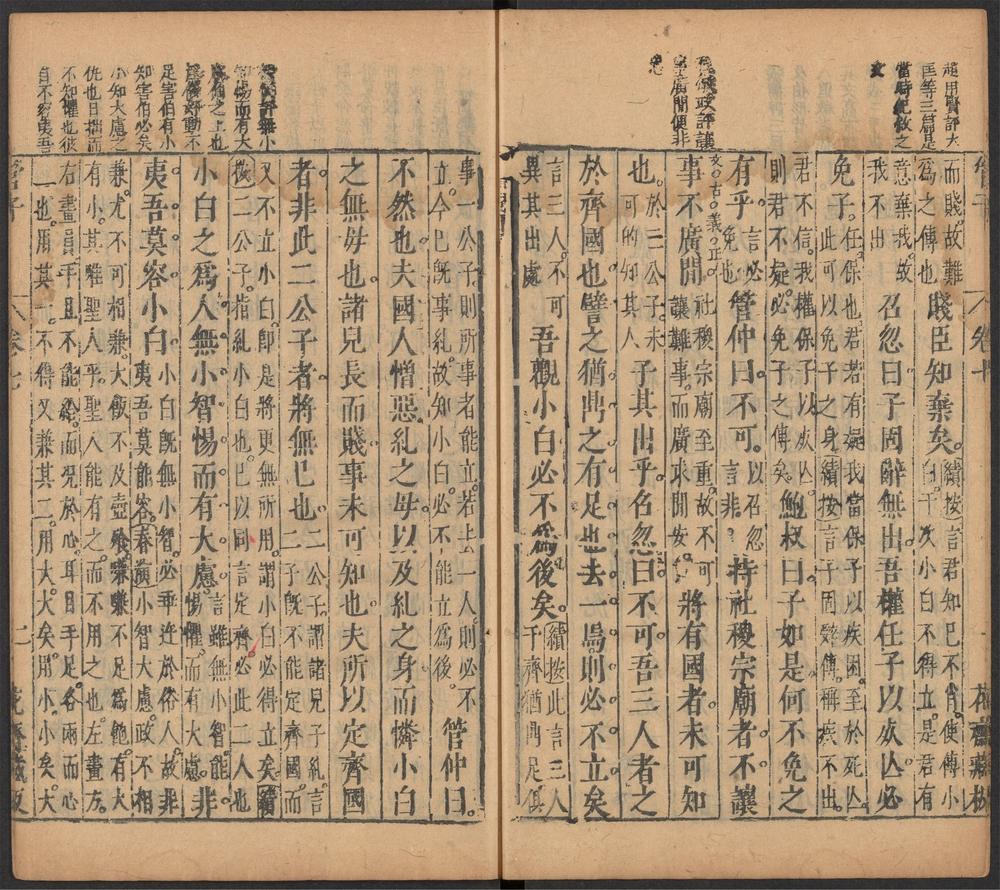 趙用賢評大
匡等三篇是
當時紀敘之
文
政評讓
事廣閒便非
忠
管子 卷七 花齋藏板
而賤故難
爲之傅也
賤臣知棄矣。
續按言君知已不肖使傅小
白于次小白不得立是君有
意棄我故
我不出
召忽曰子固辭無出吾權任子以死亡必
免子。
任保也君若有疑我當保子以疾困至於死亡
此可以免子之身續按言子固辭傅稱疾不出
君不信我權保子以死亡
則君不疑必免子之傅矣
鮑叔曰子如是何不免之
有乎
言必
免也
管仲曰不可。
以召忽
言非
持社稷宗廟者不讓
文古義正
事不廣閒
社稷宗廟至重故不可
讓難事而廣求閒安
將有國者未可知
也。
於三公子未
可的知其人
子其出乎召忽曰不可吾三人者之
於齊國也譬之猶鼎之有足也去一焉則必不立矣
言三人不可
異其出處
吾觀小白必不爲後矣。
續按此言三人
于齊猶鼎足俱
評無小
智惕而有大
慮伯之上也
好動不
足害伯有小
知害伯必矣
小知大慮之
侻也日拙而
不知懼也彼
自不容夷吾
事一公子則所事者能立若止一人則必不
立今已既事糺故知小白必不能立爲後
管仲曰
不然也夫國人憎惡糺之母以及糺之身而憐小白
之無母也諸兒長而賤事未可知也夫所以定齊國
者非此二公子者將無已也
二公子謂諸兒子糺言
二子既不能定齊國而
又不立小白即是將更無所用謂小白必得立矣續
按二公子指糺小白也已以同言定齊必此二人也
小白之爲人無小智惕而有大慮。
言雖無小智能
惕懼而有大慮非
夷吾莫容小白
小白既無小智必乖迕於俗人故非
夷吾莫能容春按小智大慮政不相
兼尤不可相兼大飯不及壺飧嗛嗛不足爲飽有大
有小其唯聖人乎聖人能有之而不用之也左畫方
右畫員手且不能給而況於心耳目手足各兩而心
一也用其一不得又兼其二用大大矣用小小矣大
管子 卷七 二 花齋藏板